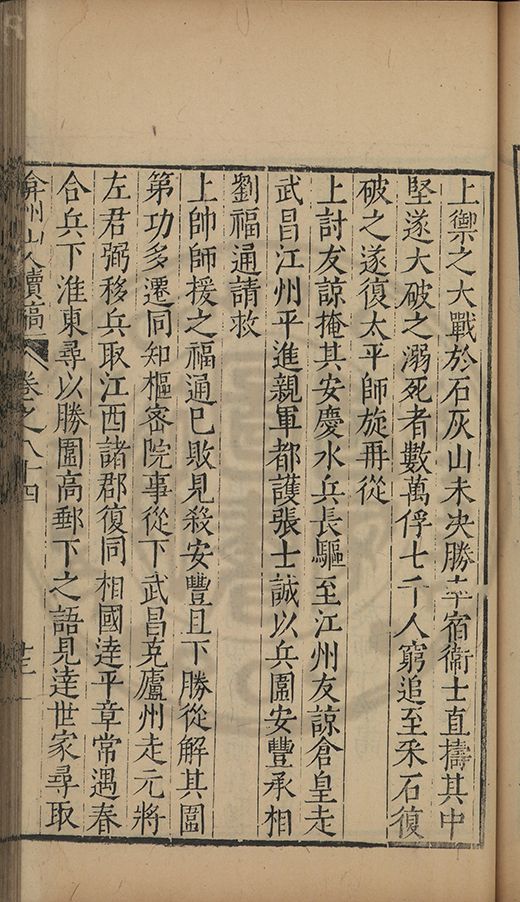 上禦之大戰於石灰山未决勝率宿衞士直擣其中
堅遂大破之溺死者數萬俘七千人窮追至采石復
破之遂復太平師旋再從
上討友諒掩其安慶水兵長驅至江州友諒倉皇走
武昌江州平進親軍都護張士誠以兵圍安豐丞相
劉福通請救
上帥師援之福通已敗見殺安豐且下勝從解其圍
第功多遷同知樞密院事從下武昌克廬州走元將
左君弼移兵取江西諸郡復同相國達平章常遇春
合兵下淮東尋以勝圍高郵下之語見達世家尋取
弇州山人續稿 卷之八十四 廿三